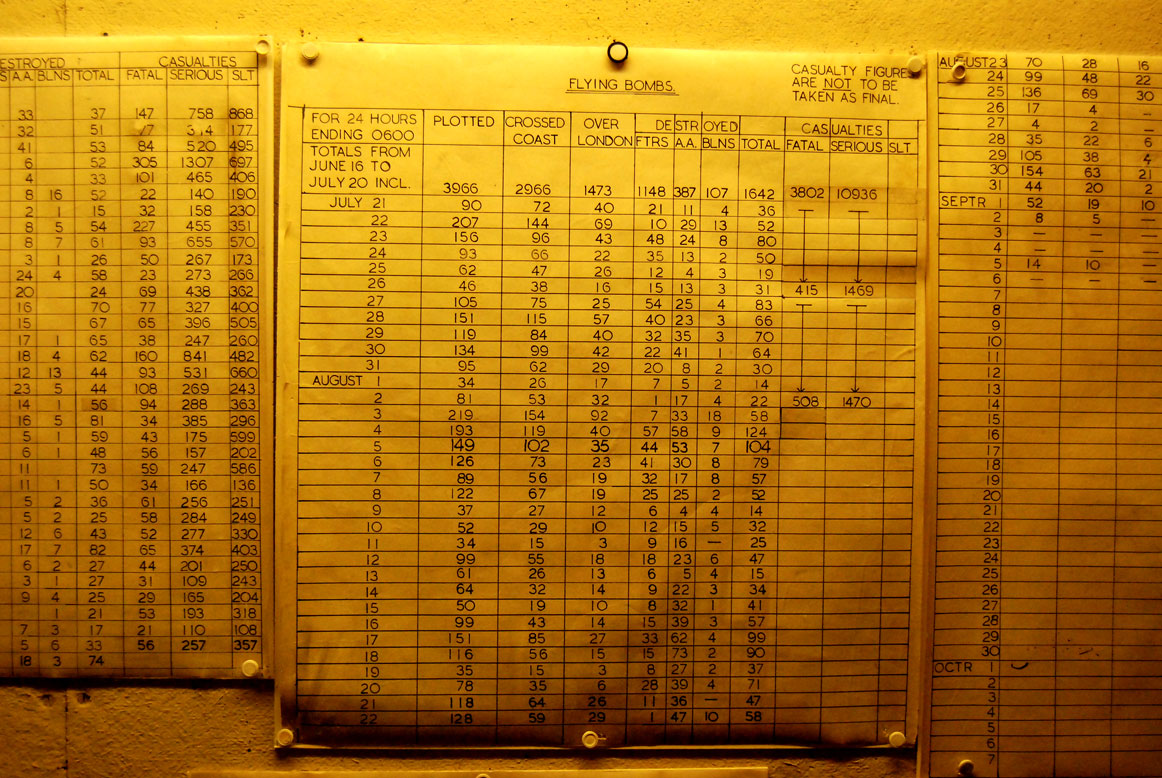 ESTROYED CASUALTIES
S A.A. BLNS TOTAL FATAL SERIOUS SLT
33 37 147 758 868
32 51 177
41 53 84 520 495
6 52 305 1307 697
4 33 101 465 406
8 16 52 22 140 190
2 1 15 32 158 230
8 5 54 227 455 351
8 7 61 93 655 570
3 1 26 50 267 173
24 4 58 23 273 266
20 24 69 438 362
16 70 77 327 400
15 67 65 396 505
17 1 65 38 247 260
18 4 62 160 841 482
12 13 44 93 531 660
23 5 44 108 269 243
14 1 56 94 288 363
16 5 81 34 385 296
5 1 59 43 175 599
6 1 48 56 157 202
11 73 59 247 586
11 1 50 34 166 136
5 2 36 61 256 251
5 2 25 58 284 249
12 6 43 52 277 330
17 7 82 65 374 403
6 2 27 44 201 250
3 1 27 31 109 243
9 4 25 29 165 204
1 21 53 193 318
7 3 17 21 110 108
5 6 33 56 257 357
18 3 74
FLYING BOMBS.
CASUALTY FIGURES
ARE NOT TO BE
TAKEN AS FINAL.
FOR 24 HOURS ENDING 0600 PLOTTED CROSSED COAST OVER LONDON DESTROYED FTRS A.A. BLNS TOTAL CASUALTIES FATAL SERIOUS SLT
TOTALS FROM
JUNE 16 TO
JULY 20 INCL. 3966 2966 1473 1148 387 107 1642 3802 10936
JULY 21 90 72 40 21 11 4 36
22 207 144 69 10 29 13 52
23 156 96 43 48 24 8 80
24 93 66 22 35 13 2 50
25 62 47 26 12 4 3 19
26 46 38 16 15 13 3 31 415 1469
27 105 75 25 54 25 4 83
28 151 115 57 40 23 3 66
29 119 84 40 32 35 3 70
30 134 99 42 22 41 1 64
31 95 62 29 20 8 2 30
AUGUST 1 34 26 17 7 5 2 14
2 81 53 32 1 17 4 22 508 1470
3 219 154 92 7 33 18 58
4 193 119 40 57 58 9 124
5 149 102 35 44 53 7 104
6 126 73 23 41 30 8 79
7 89 56 19 32 17 8 57
8 122 67 19 25 25 2 52
9 37 27 12 6 4 4 14
10 52 29 10 12 15 5 32
11 34 15 3 9 16 — 25
12 99 55 18 18 23 6 47
13 61 26 13 6 5 4 15
14 64 32 14 9 22 3 34
15 50 19 10 8 32 1 41
16 99 43 14 15 39 3 57
17 151 85 27 33 62 4 99
18 116 56 15 15 73 2 90
19 35 15 3 8 27 2 37
20 78 35 6 28 39 4 71
21 118 64 26 11 36 — 47
22 128 59 29 1 47 10 58
AUGUST 23 70 28 16
24 99 48 22
25 136 69 30
26 17 4 —
27 4 2 —
28 35 22 6
29 105 38 4
30 154 63 21
31 44 20 2
SEPTR 1 52 19 10
2 8 5 —
3 — — —
4 — — —
5 14 10 —
6 — — —
7
8
9
10
11
12
13
14
15
16
17
18
19
20
21
22
23
24
25
26
27
28
29
30
OCTR 1
2
3
4
5
6
7